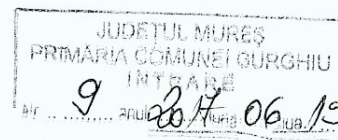 JUDEȚUL MUREȘ
PRIMĂRIA COMUNEI GURGHIU
INTRARE
Nr. 9 anul 2017 luna 06 ziua 19